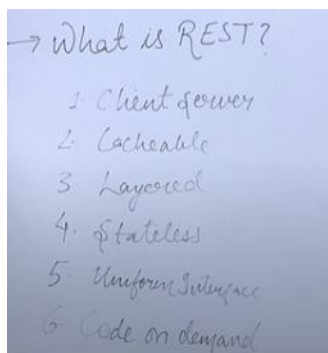 → What is REST?
1. Client server
2. Cacheable
3. Layered
4. Stateless
5. Uniform Interface
6. Code on demand